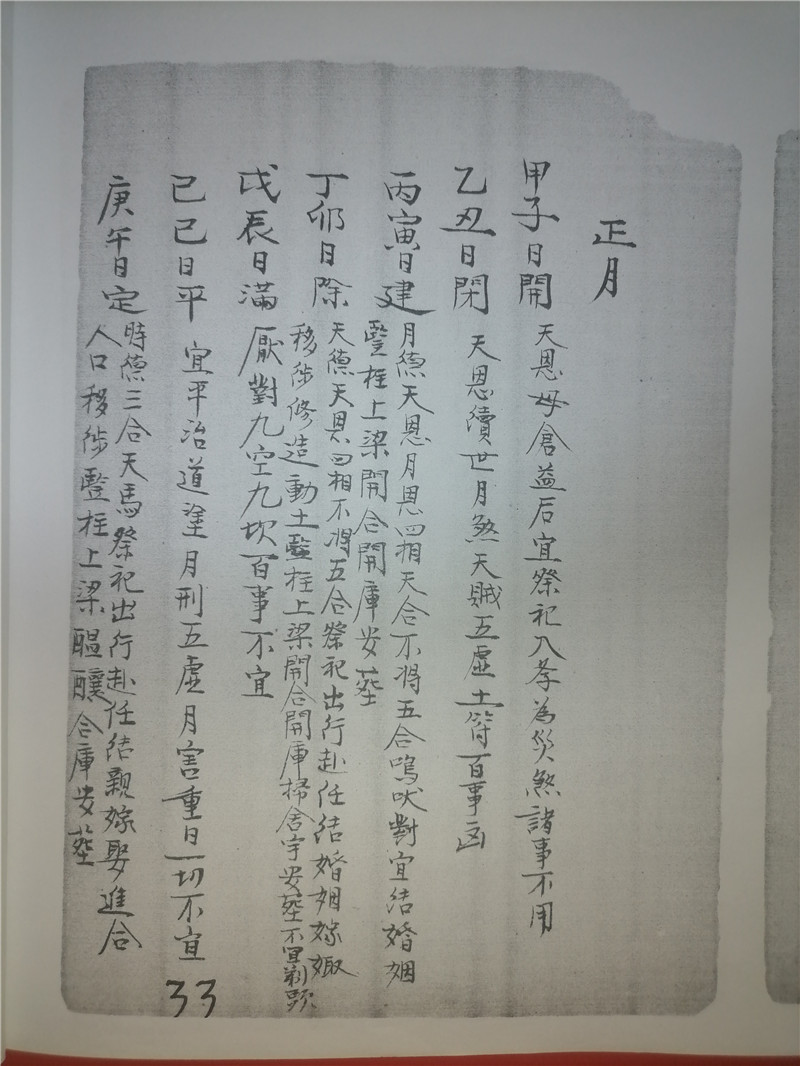 正月
甲子日開 天恩母倉益后宜祭祀入孝為災煞諸事不用
乙丑日閉 天恩續世月煞天賊五虛土符百事凶
丙寅日建 月德天恩月恩四相天合不將五合鳴吠對宜結婚姻
豎柱上梁開合開庫安葬
丁卯日除 天德天恩四相不將五合祭祀出行赴任結婚姻嫁娶
移徙修造動土豎柱上梁開合開庫掃舍宇安葬不宜剃頭
戊辰日滿 厭對九空九坎百事不宜
己巳日平 宜平治道塗月刑五虛月害重日一切不宜
庚午日定 時德三合天馬祭祀出行赴任結親嫁娶進合
人口移徙豎柱上梁醞釀合庫安葬
33